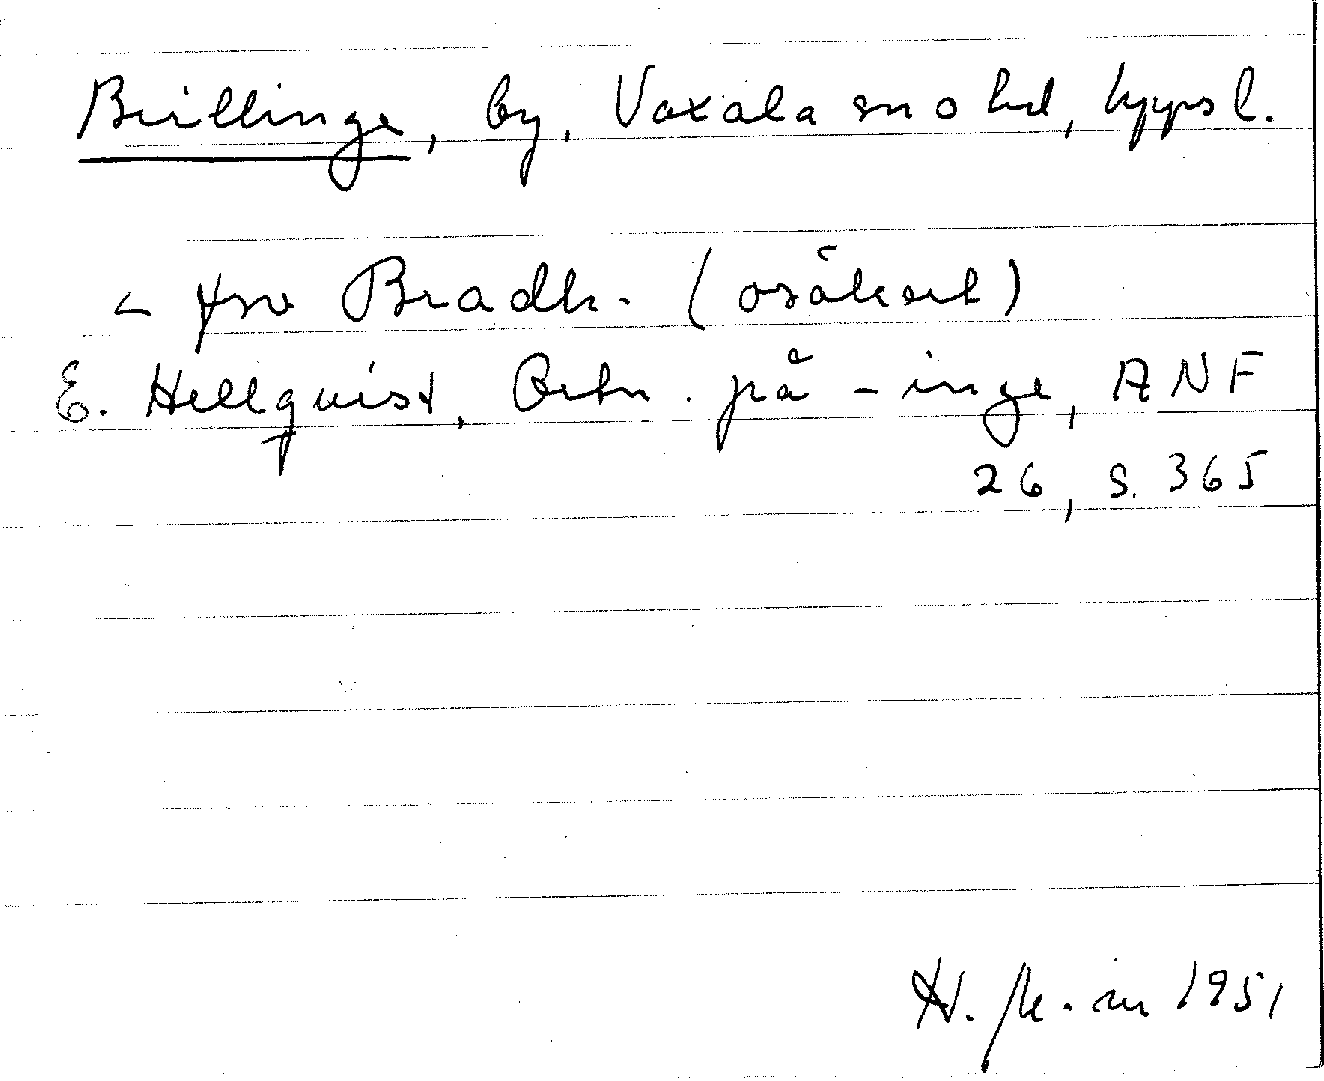 Brillinge, by, Vaxala sn o hd, Uppsl.
< fsv Bradh- (osäkert)
E. Hellquist, Ortn. på -inge, ANF
26, s. 365
H. 1951